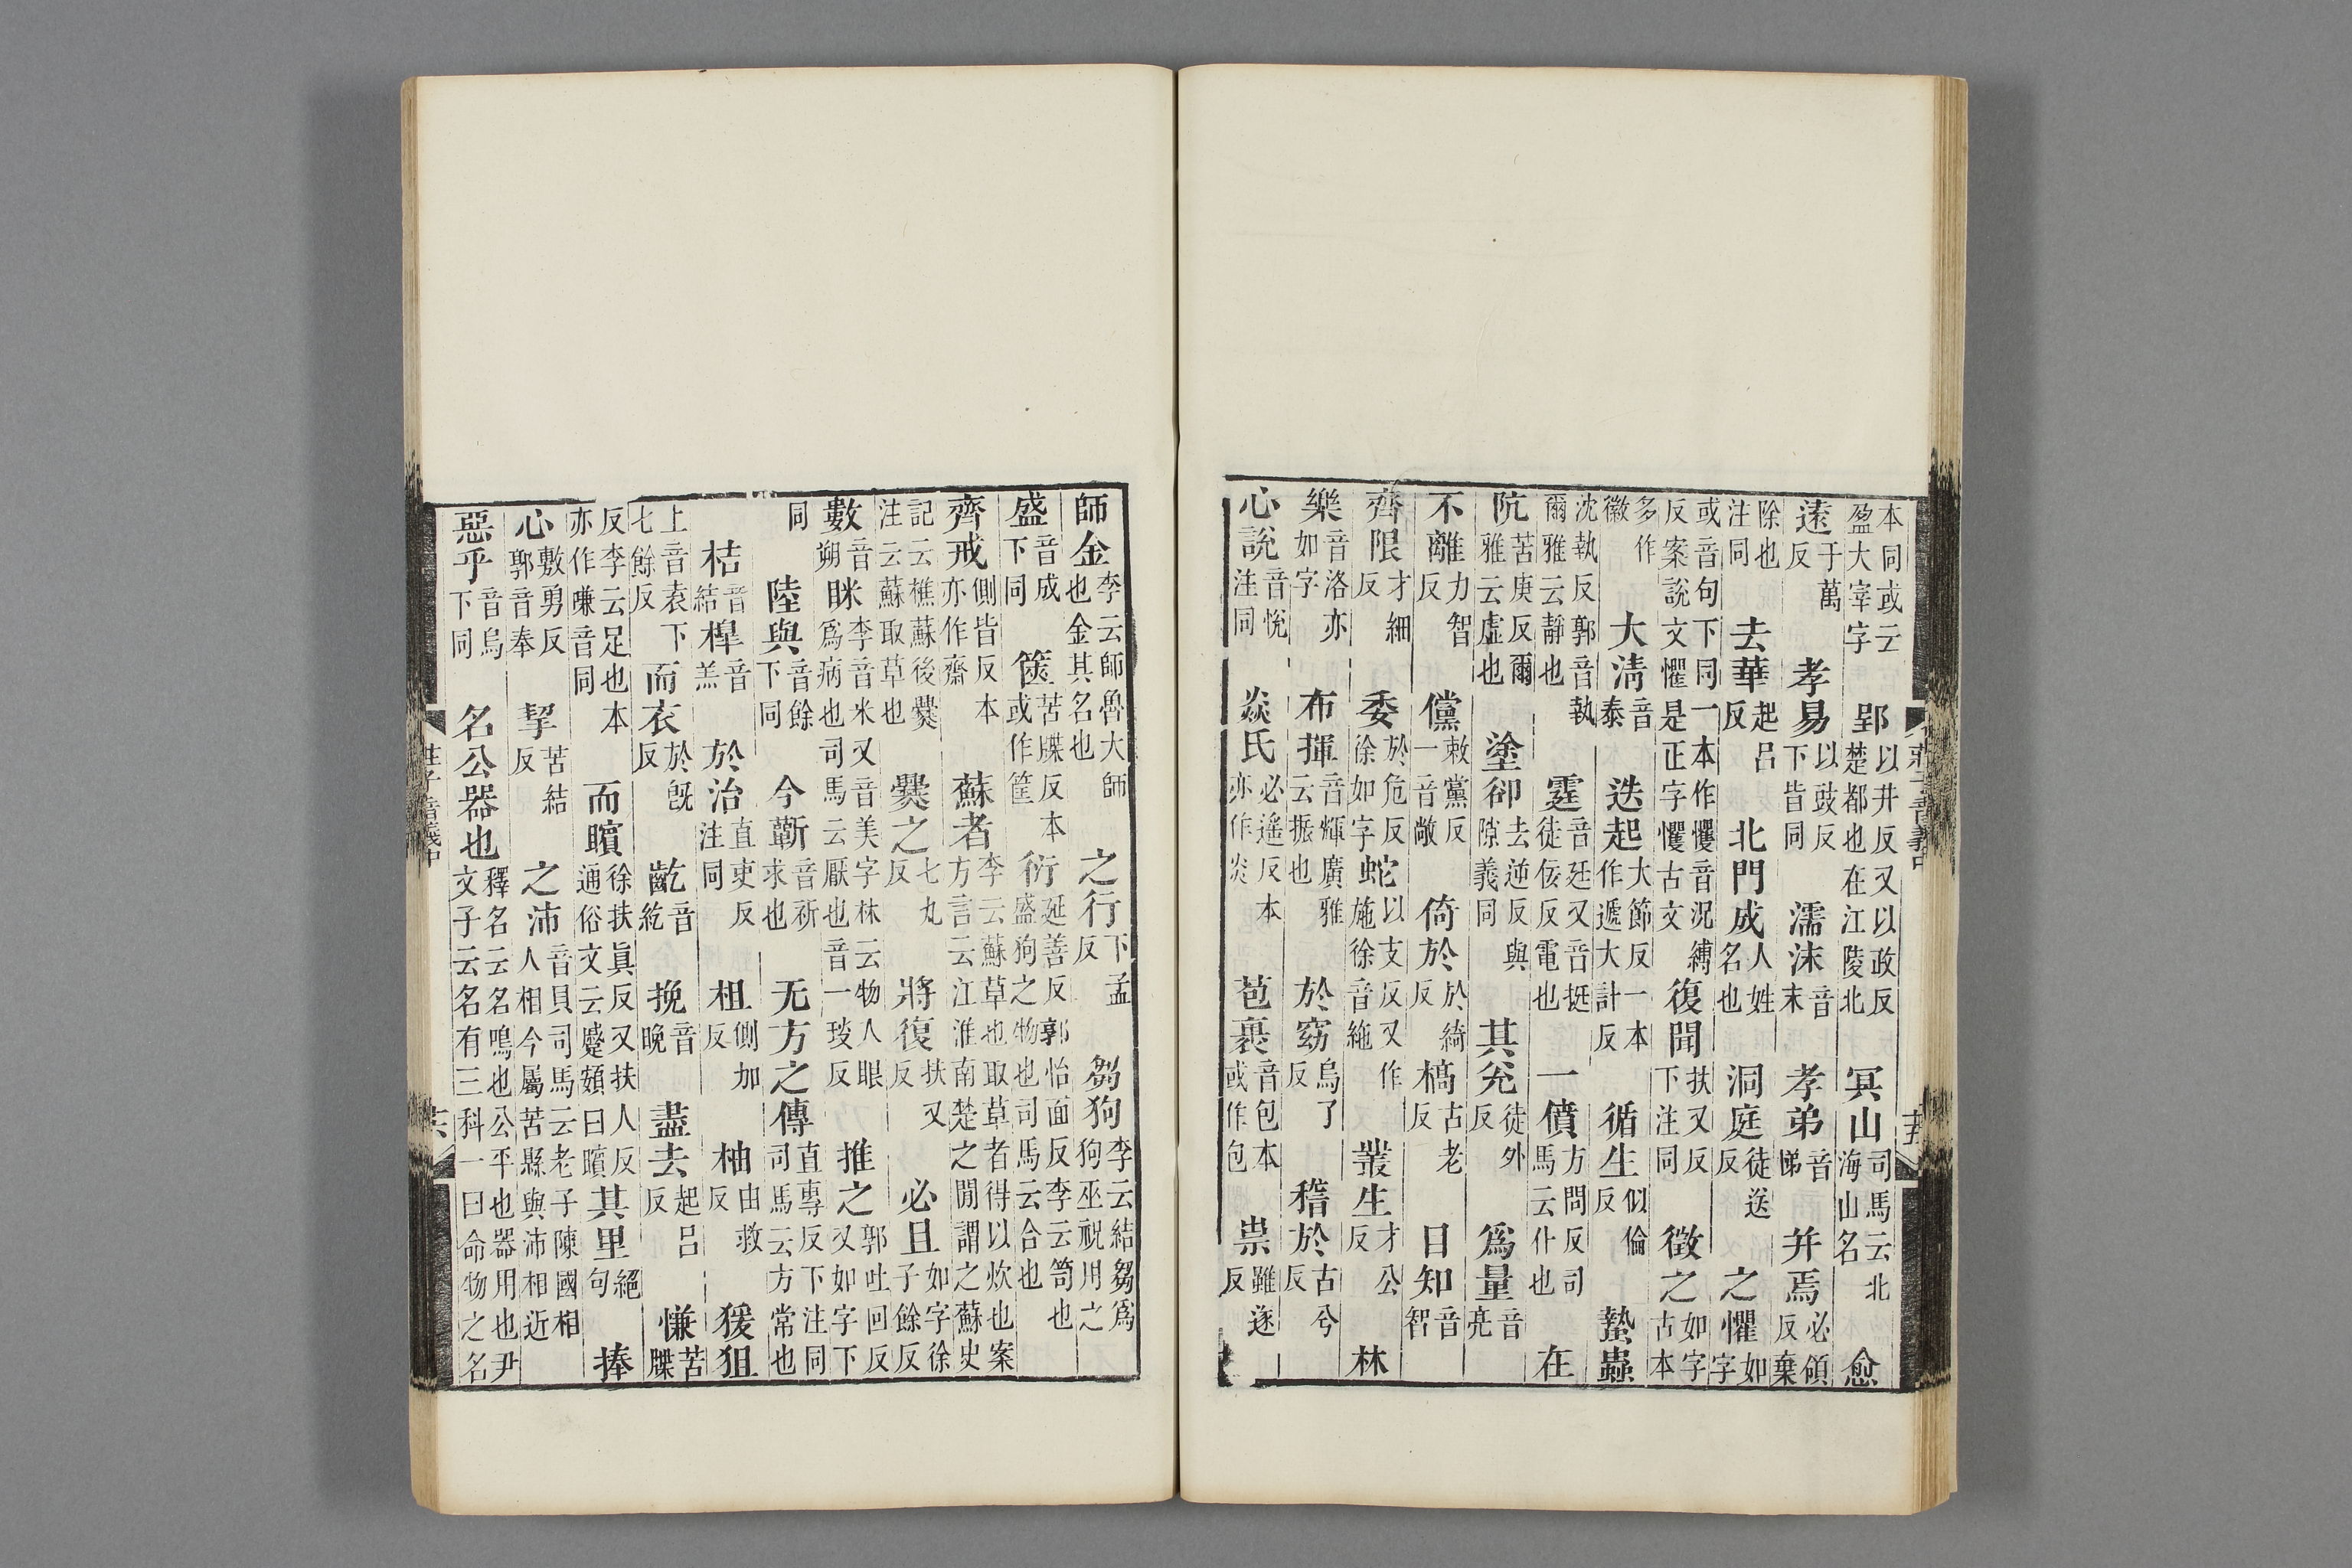 莊子音義中
本同或云盈大宰字 郢以井反又以政反楚都也在江陵北 冥山司馬云北海山名 愈
遠于萬反 孝易以豉反下皆同 濡沫音末 孝弟音悌 并焉必領反棄
除也注同 去華起呂反 北門成人姓名也 洞庭徒送反 之懼如字
或音句下同一本作戄音況縛反案說文懼是正字懼古文 復聞扶又反下注同 徵之如字古本
多作徽 大清音泰 迭起大節反一本作遞大計反 循生似倫反 蟄蟲
沈執反郭音執爾雅云靜也 霆音廷又音挺徒佞反電也 一僨方問反司馬云仆也 在
阬苦庚反爾雅云虛也 塗卻去逆反與隙義同 其兊徒外反 爲量音亮
不離力智反 儻敕黨反一音敞 倚於於綺反 槁古老反 目知音智
齊限才細反 委於危反徐如字 蛇以支反又作施徐音絁 叢生才公反 林
樂音洛亦如字 布揮音輝廣雅云振也 於窈烏了反 稽於古兮反
心說音悅注同 焱氏必遙反本亦作炎 苞裹音包本或作包 祟雖遂反
師金李云師魯大師也金其名也 之行下孟反 芻狗李云結芻爲狗巫祝用之
盛音成下同 篋苦牒反本或作筐 衍延善反郭怡面反李云笥也盛狗之物也司馬云合也
齊戒側皆反本亦作齋 蘇者李云蘇草也取草者得以炊也案方言云江淮南楚之閒謂之蘇史
記云樵蘇後爨注云蘇取草也 爨之七丸反 將復扶又反 必且如字徐子餘反
數音朔 眯李音米又音美字林云物入眼爲病也司馬云厭也音一琰反 推之郭吐回反又如字下
同 陸與音餘下同 今蘄音祈求也 无方之傳直專反下注同司馬云方常也
桔音結 槹音羔 於治直吏反注同 柤側加反 柚由救反 猨狙
上音袁下七餘反 而衣於旣反 齕音紇 挽音晚 盡去起呂反 慊苦牒
反李云足也本亦作嗛音同 而矉徐扶眞反又扶人反通俗文云蹙頞曰矉 其里絕句 捧
心敷勇反郭音奉 挈苦結反 之沛音貝司馬云老子陳國相人相今屬苦縣與沛相近
惡乎音烏下同 名公器也釋名云名鳴也公平也器用也尹文子云名有三科一曰命物之名
莊子音義中